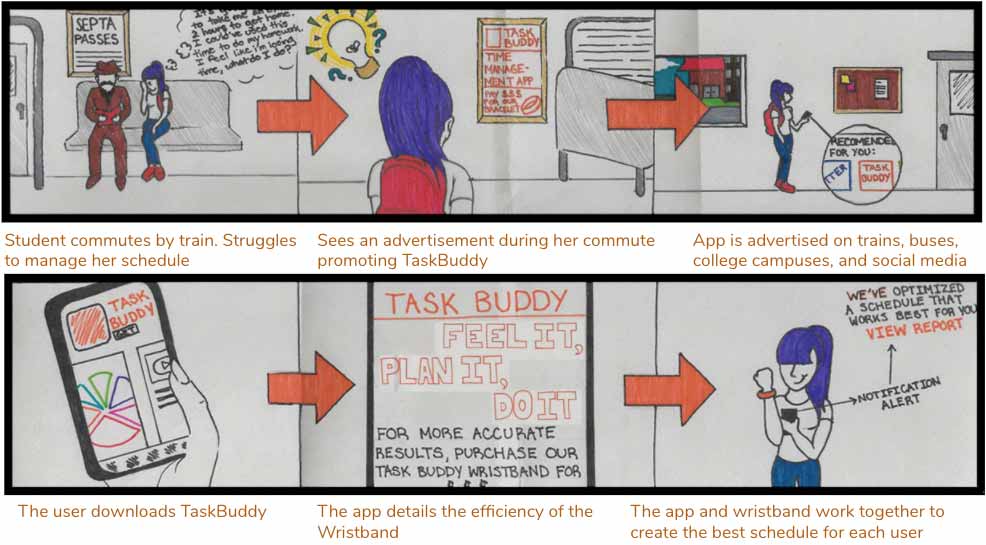 SEPTA
PASSES
to take me
2 hours to get home.
I could've used this
time to do my homework.
I feel like i'm losing
time, what do I do?
?
?
?
TASK
BUDDY
TIME
MANAGE-
MENT APP
$$$
FOR OUR
BRACELET
RECOMENDED
FOR YOU:
TTER
TASK
BUDDY
Student commutes by train. Struggles
to manage her schedule
Sees an advertisement during her commute
promoting TaskBuddy
App is advertised on trains, buses,
college campuses, and social media
TASK
BUDDY
GET
TASK BUDDY
FEEL IT,
PLAN IT,
DO IT
FOR MORE ACCURATE
RESULTS, PURCHASE OUR
TASK BUDDY WRISTBAND FOR
WE'VE OPTIMIZED
A SCHEDULE THAT
WORKS BEST FOR YOU
VIEW REPORT
NOTIFICATION
ALERT
The user downloads TaskBuddy
The app details the efficiency of the
Wristband
The app and wristband work together to
create the best schedule for each user